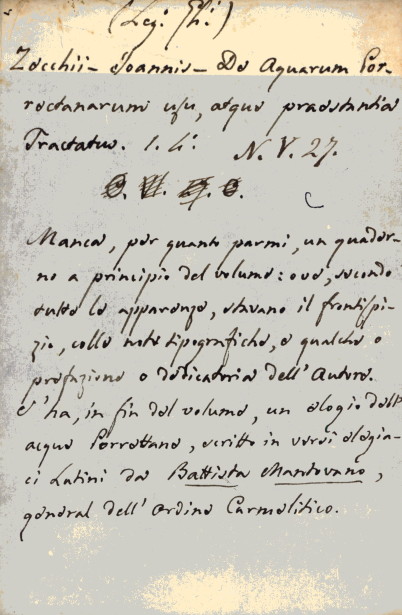 (Leg. Fh:)
Zecchii - Joannis - De Aquarum Por-
rectanarum usu, atque praestantia
Tractatus. 1. 4:
N. V. 27.
Manca, per quanto parmi, un quader-
no a principio del volume: ove, secondo
tutte le apparenze, stavano il frontispi-
zio, colle note tipografiche, e qualche o
prefazione o dedicatoria dell'Autore.
V'ha, in fin del volume, un elogio dell'
acque Porrettane, scritto in versi elegia-
ci Latini da Battista Mantovano,
general dell'Ordine Carmelitico.